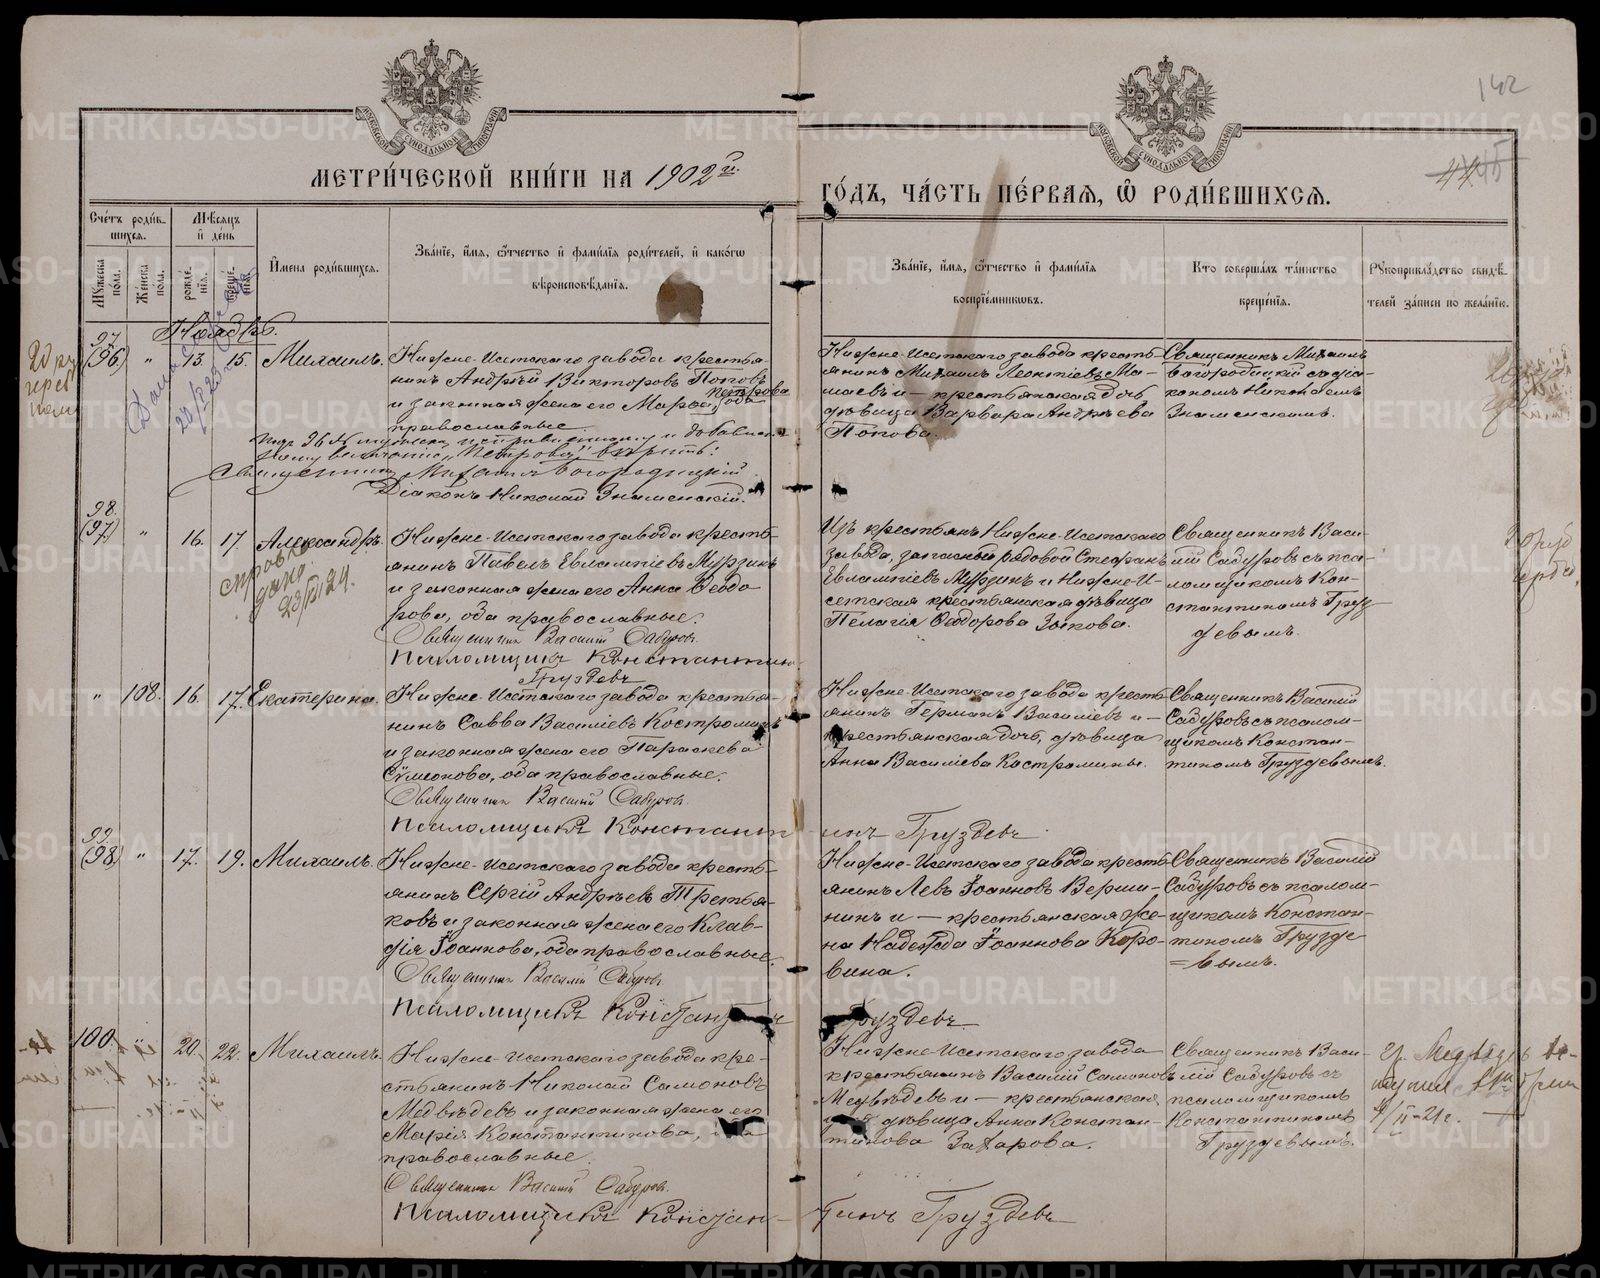 142
МЕТРИ́ЧЕСКОЙ КНИ́ГИ НА 1902й.
ГО́ДЪ, ЧА́СТЬ ПЕ́РВАЯ, Ѽ РОДИ́ВШИХСЯ.
Сче́тъ роди́в-
шихся.
Му́жеска пола.
Же́нска пола.
Мѣ́сяцъ и де́нь
рожде́нїя.
креще́нїя.
И҆мена роди́вшихся.
Зва́нїе, и҆́мя, ѻ҆́тчество и҆ фами́лїя роди́телей, и҆ како́гѡ
вѣроисповѣ́данїя.
Зва́нїе, и҆́мя, ѻ҆́тчество и҆ фами́лїя
воспрїе́мникѡвъ.
Кто̀ соверша́лъ та́инство
креще́нїя.
Рꙋкоприкла́дство свидѣ́-
телей за́писи по жела́нїю.
Ноябрь.
97
(96) " 13. 15. Михаилъ.
Нижне-Исетскаго завода крестья-
нинъ Андрей Викторовъ Поповъ
и законная жена его Марѳа Петрова
оба
православные.
Священникъ Михаилъ Богородицкій
Діаконъ Николай Знаменскій.
Нижне-Исетскаго завода кресть-
янинъ Михаилъ Леонтіевъ Ма-
шаевъ и — крестьянская дочь
дѣвица Варвара Андреева
Попова.
Священникъ Михаилъ
Богородицкій съ діа-
кономъ Николаемъ
Знаменскимъ.
98.
(97) " 16. 17. Александръ.
справка
дана
23/VI 24.
Нижне-Исетскаго завода кресть-
янинъ Павелъ Евлампіевъ Мурзинъ
и законная жена его Анна Ѳеодо
рова, оба православные.
Священникъ Василій Сабуровъ.
Псаломщикъ Константинъ
Груздевъ
Изъ крестьянъ Нижне-Исетскаго
завода, запасный рядовой Стефанъ
Евлампіевъ Мурзинъ и Нижне-И-
сетская крестьянская дѣвица
Пелагія Ѳадорова Зыкова.
Священникъ Васи-
лій Сабуровъ съ пса-
ломщикомъ Кон-
стантиномъ Груз-
девымъ.
" 108. 16. 17. Екатерина.
Нижне-Исетскаго завода крестья-
нинъ Савва Василіевъ Костроминъ
и законная жена его Параскева
Сѵмеонова, оба православные.
Священникъ Василій Сабуровъ.
Псаломщикъ Константинъ Груздевъ.
Нижне-Исетскаго завода кресть-
янинъ Германъ Василіевъ и —
крестьянская дочь, дѣвица
Анна Василіева Костромины.
Священникъ Василій
Сабуровъ съ псалом-
щикомъ Констан-
тиномъ Груздевымъ.
99.
(98) " 17. 19. Михаилъ.
Нижне-Исетскаго завода кресть-
янинъ Сергій Андреевъ Третья-
ковъ и законная жена его Клав-
дія Іоаннова, оба православные.
Священникъ Василій Сабуровъ
Псаломщикъ Константинъ Груздевъ
Нижне-Исетскаго завода кресть-
янинъ Левъ Іоанновъ Верши-
нинъ и — крестьянская же-
на Надежда Іоаннова Коро-
вина.
Священникъ Василій
Сабуровъ съ псалом-
щикомъ Констан-
тиномъ Груздe
=вымъ.
100. " 20. 22. Михаилъ.
Нижне-Исетскаго завода кре-
стьянинъ Николай Самоновъ
Медвѣдевъ и законная жена его
Марія Константинова, оба
православные.
Священникъ Василій Сабуровъ.
Псаломщикъ Константинъ Груздевъ
Нижне-Исетскаго завода
крестьянинъ Василій Самоновъ
Медвѣдевъ и — крестьянская
дѣвица Анна Констан-
тинова Захарова.
Священникъ Васи-
лій Сабуровъ съ
псаломщикомъ
Константиномъ
Груздевымъ.